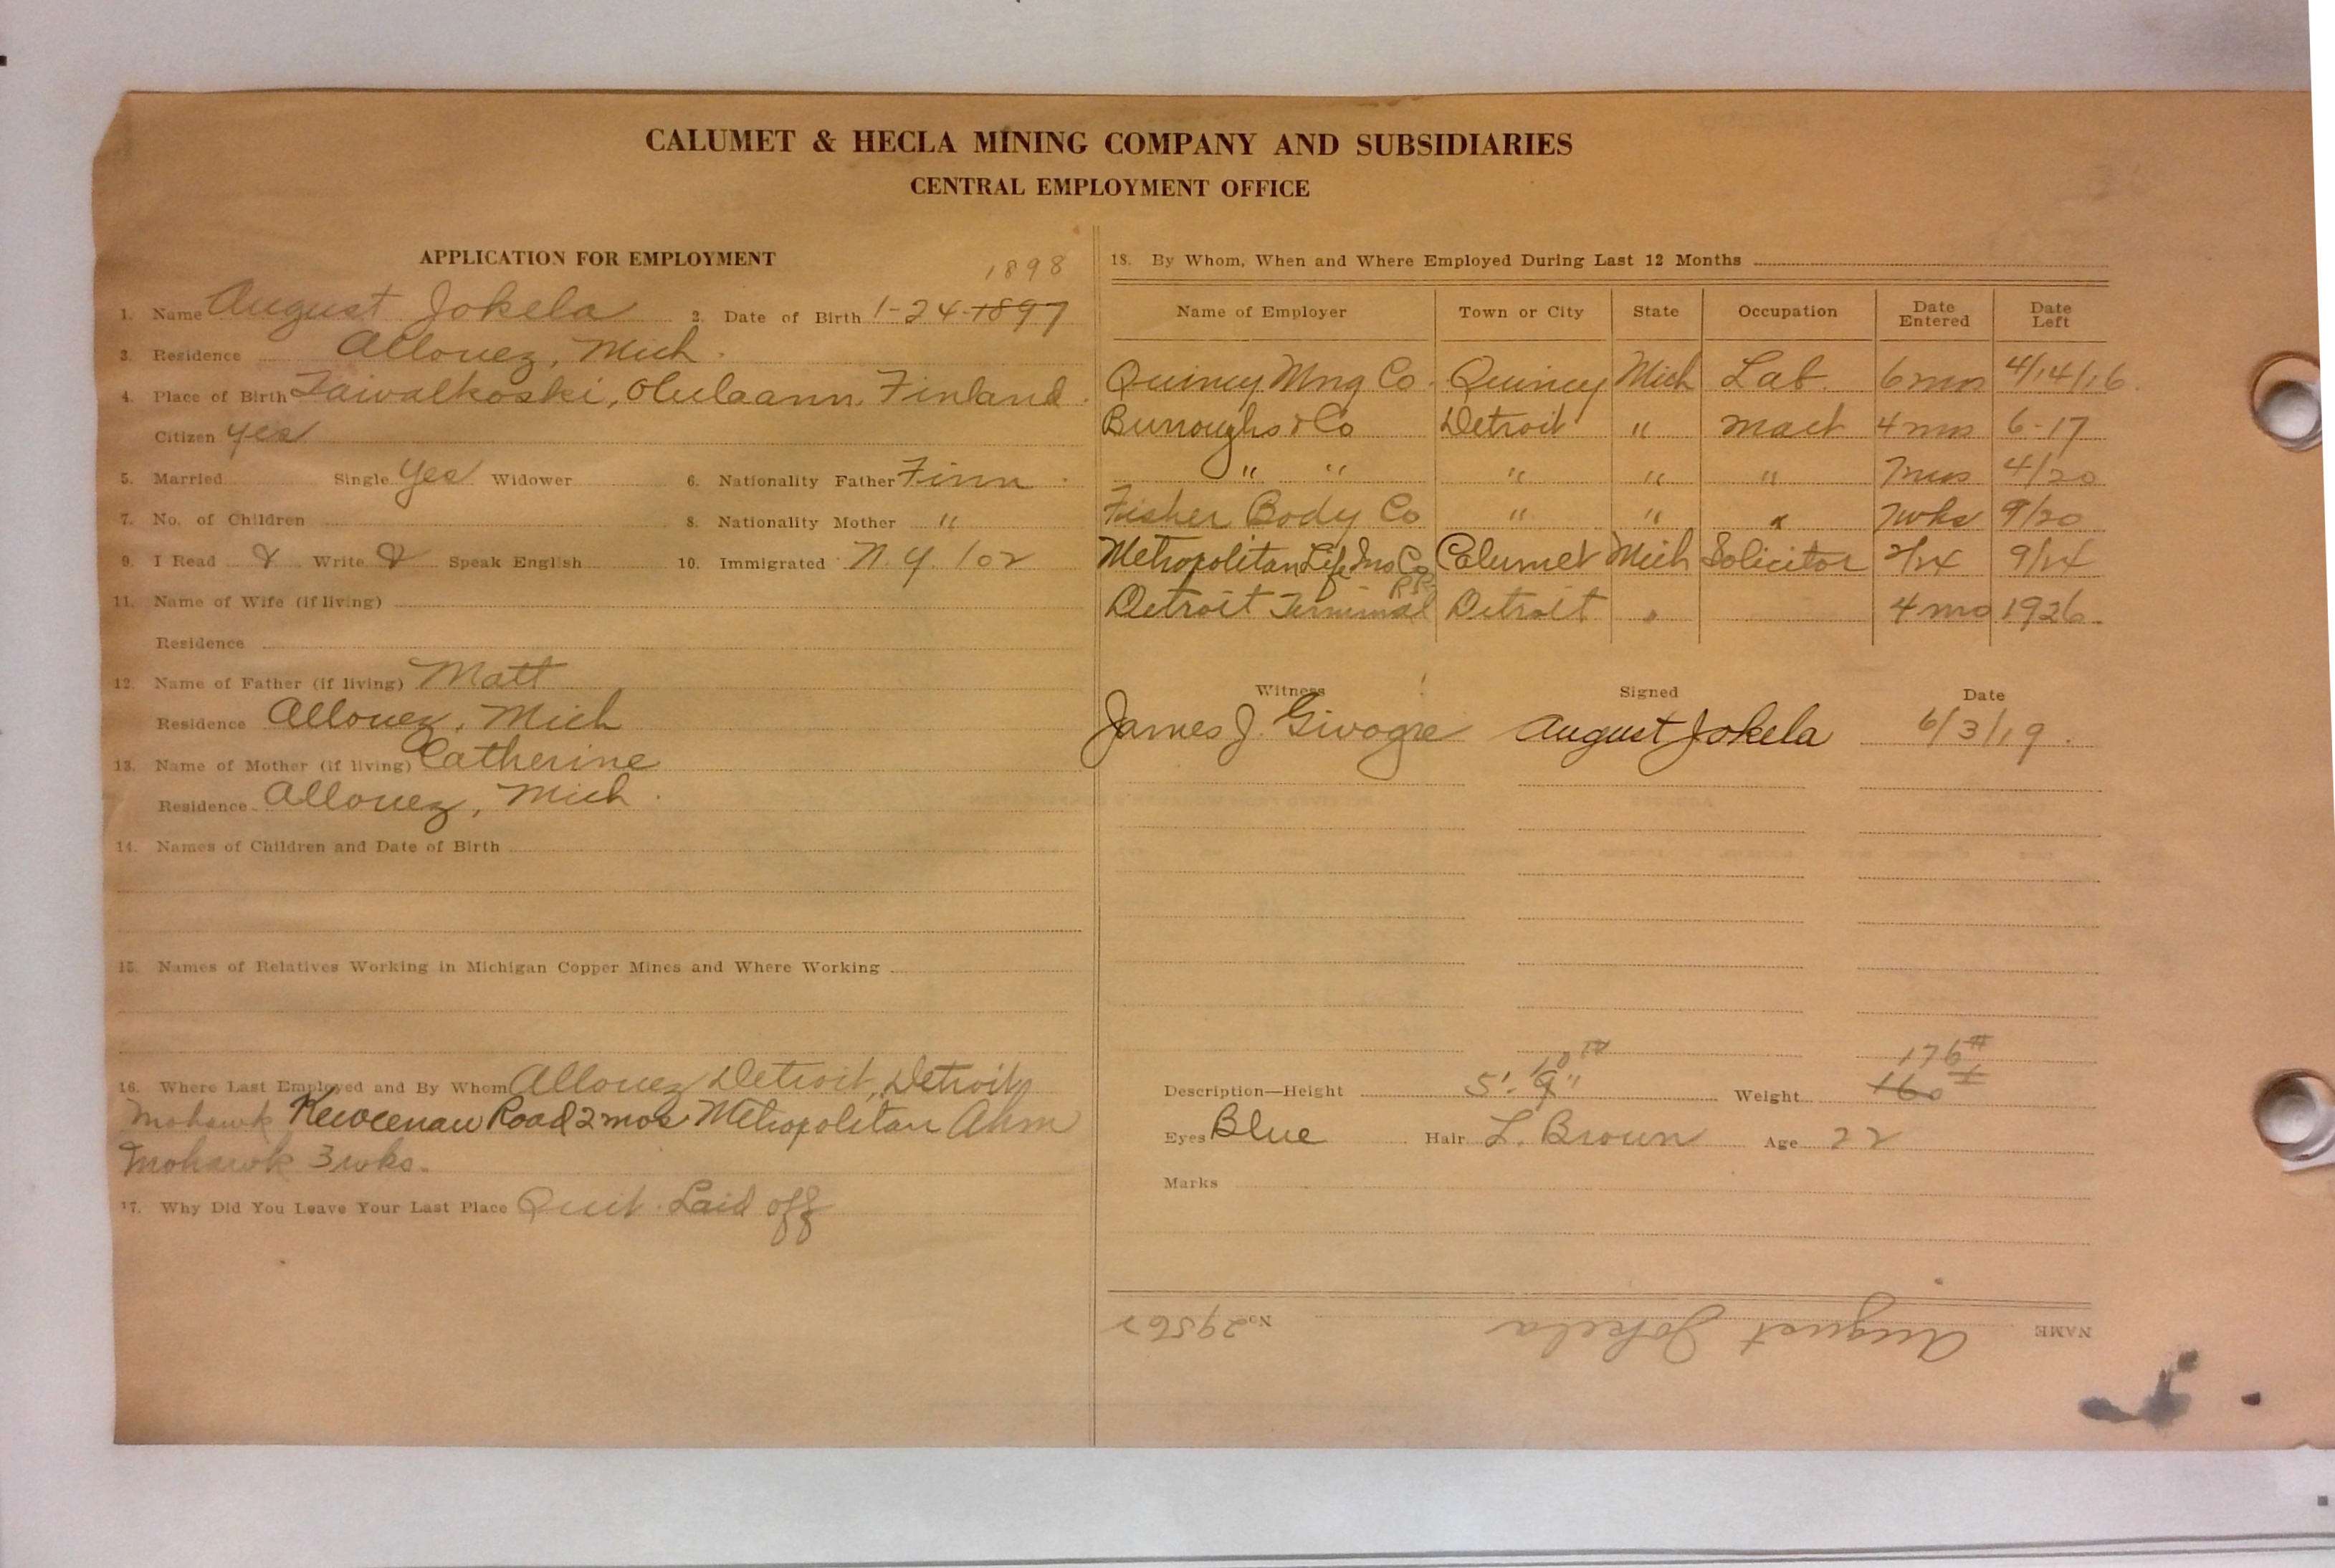 CALUMET & HECLA MINING COMPANY AND SUBSIDIARIES
CENTRAL EMPLOYMENT OFFICE
APPLICATION FOR EMPLOYMENT
1898
1. Name August Jokela 2. Date of Birth 1-24-1897
3. Residence Allouez, Mich.
4. Place of Birth Taivalkoski, Olulaann, Finland.
Citizen yes
5. Married Single Yes Widower 6. Nationality Father Finn
7. No. of Children 8. Nationality Mother "
9. I Read & Write & Speak English 10. Immigrated N.Y. 102
11. Name of Wife (if living)
Residence
12. Name of Father (if living) Matt
Residence Allouez, Mich
13. Name of Mother (if living) Catherine
Residence Allouez, Mich.
14. Names of Children and Date of Birth
15. Names of Relatives Working in Michigan Copper Mines and Where Working
16. Where Last Employed and By Whom Allouez Detroit, Detroit
Mohawk Keweenaw Road 2 mos Metropolitan Ahm
Mohawk 3 wks.
17. Why Did You Leave Your Last Place Quit. Laid off
18. By Whom, When and Where Employed During Last 12 Months
Name of Employer Town or City State Occupation Date Entered Date Left
Quincy Mng Co. Quincy Mich Lab. 6 mos 4/14/16.
Burroughs & Co Detroit " Mach 4 mos 6-17
" " " " " 7 mos 4/20
Fisher Body Co " " " 7 wks 9/20
Metropolitan Life Ins Co Calumet Mich Solicitor 2/24 9/24
Detroit Terminal RR Detroit " 4 mo 1926.
Witness Signed Date
James J. Givogre August Jokela 6/3/19.
10 176#
Description—Height 5'-9" Weight 160
Eyes Blue Hair L. Brown Age 22
Marks
NAME August Jokela No. 29562